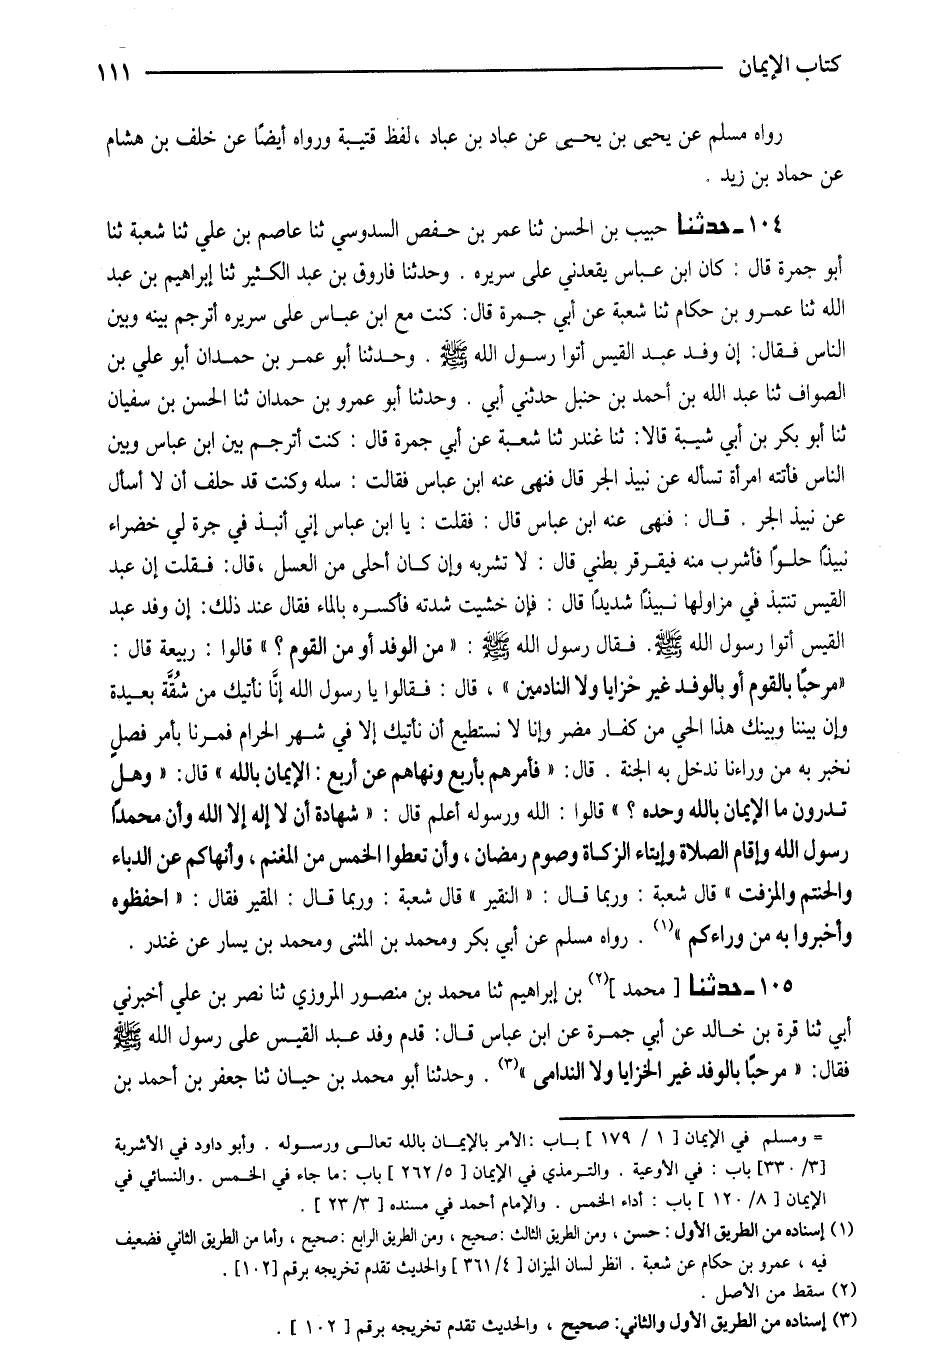 كتاب الإيمان ١١١
رواه مسلم عن يحيى بن يحيى عن عباد بن عباد ، لفظ قتيبة ورواه أيضًا عن خلف بن هشام
عن حماد بن زيد .
١٠٤ـ حدثنا حبيب بن الحسن ثنا عمر بن حفص السدوسي ثنا عاصم بن علي ثنا شعبة ثنا
أبو جمرة قال : كان ابن عباس يقعدني على سريره . وحدثنا فاروق بن عبد الكثير ثنا إبراهيم بن عبد
الله ثنا عمرو بن حكام ثنا شعبة عن أبي جمرة قال: كنت مع ابن عباس على سريره أترجم بينه وبين
الناس فقال: إن وفد عبد القيس أتوا رسول الله ﷺ . وحدثنا أبو عمر بن حمدان أبو علي بن
الصواف ثنا عبد الله بن أحمد بن حنبل حدثني أبي . وحدثنا أبو عمرو بن حمدان ثنا الحسن بن سفيان
ثنا أبو بكر بن أبي شيبة قالا: ثنا غندر ثنا شعبة عن أبي جمرة قال : كنت أترجم بين ابن عباس وبين
الناس فأتته امرأة تسأله عن نبيذ الجر قال فنهى عنه ابن عباس فقالت : سله وكنت قد حلف أن لا أسأل
عن نبيذ الجر . قال : فنهى عنه ابن عباس قال : فقلت : يا ابن عباس إني أنبذ في جرة لي خضراء
نبيذًا حلوًا فأشرب منه فيقرقر بطني قال : لا تشربه وإن كان أحلى من العسل ، قال: فقلت إن عبد
القيس تنتبذ في مزاولها نبيذًا شديدًا قال : فإن خشيت شدته فأكسره بالماء فقال عند ذلك: إن وفد عبد
القيس أتوا رسول الله ﷺ. فقال رسول الله ﷺ : « من الوفد أو من القوم ؟ » قالوا : ربيعة قال :
«مرحبًا بالقوم أو بالوفد غير خزايا ولا النادمين » ، قال : فقالوا يا رسول الله إنَّا نأتيك من شُقَّة بعيدة
وإن بيننا وبينك هذا الحي من كفار مضر وإنا لا نستطيع أن نأتيك إلا في شهر الحرام فمرنا بأمر فصلٍ
نخبر به من وراءنا ندخل به الجنة . قال: « فأمرهم بأربع ونهاهم عن أربع : الإيمان بالله » قال: « وهل
تدرون ما الإيمان بالله وحده ؟ » قالوا : الله ورسوله أعلم قال : « شهادة أن لا إله إلا الله وأن محمدًا
رسول الله وإقام الصلاة وإيتاء الزكاة وصوم رمضان ، وأن تعطوا الخمس من المغنم ، وأنهاكم عن الدباء
والحنتم والمزفت » قال شعبة : وربما قال : « النقير » قال شعبة : وربما قال : المقير فقال : « احفظوه
وأخبروا به من وراءكم »(١) . رواه مسلم عن أبي بكر ومحمد بن المثنى ومحمد بن يسار عن غندر .
١٠٥ـ حدثنا [ محمد ](٢) بن إبراهيم ثنا محمد بن منصور المروزي ثنا نصر بن علي أخبرني
أبي ثنا قرة بن خالد عن أبي جمرة عن ابن عباس قال: قدم وفد عبد القيس على رسول الله ﷺ
فقال: « مرحبًا بالوفد غير الخزايا ولا الندامى »(٣) . وحدثنا أبو محمد بن حيان ثنا جعفر بن أحمد بن
= ومسلم في الإيمان [ ١ / ١٧٩ ] باب : الأمر بالإيمان بالله تعالى ورسوله . وأبو داود في الأشربة
[٣/ ٣٣٠] باب : في الأوعية . والترمذي في الإيمان [ ٥/ ٢٦٢ ] باب : ما جاء في الخمس . والنسائي في
الإيمان [ ٨/ ١٢٠ ] باب : أداء الخمس . والإمام أحمد في مسنده [ ٣/ ٢٣ ] .
(١) إسناده من الطريق الأول : حسن ، ومن الطريق الثالث : صحيح ، ومن الطريق الرابع : صحيح ، وأما من الطريق الثاني فضعيف
فيه ، عمرو بن حكام عن شعبة . انظر لسان الميزان [ ٤/ ٣٦١ ] والحديث تقدم تخريجه برقم [١٠٢] .
(٢) سقط من الأصل .
(٣) إسناده من الطريق الأول والثاني: صحيح ، والحديث تقدم تخريجه برقم [ ١٠٢ ] .